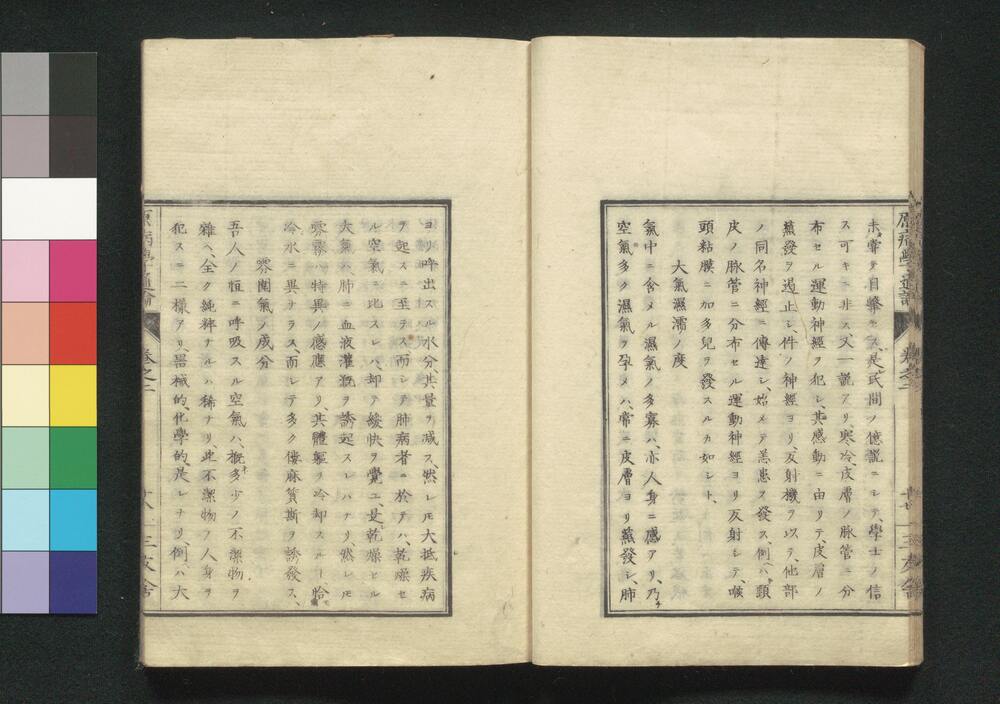 未嘗テ目撃セス、是民間ノ億説ニシテ學士ノ信
ス可キニ非ス、又一説アリ、寒冷、皮膚ノ脈管ニ分
布セル運動神経ヲ犯シ、其感動ニ由リテ、皮層ノ
蒸發ヲ遏止シ、件ノ神經ヨリ反射機ヲ以テ、他部
ノ同名神経ニ傳達シ、始メテ恙患ヲ發ス、例ハ頸
皮ノ脈管ニ分布セル運動神経ヨリ反射シテ、喉
頭粘膜ニ加多兒ヲ發スルカ如シト、
大氣濕濡ノ度
氣中ニ含メル濕氣ノ多寡ハ、亦人身ニ感アリ、乃チ
空氣多ク濕氣ヲ孕メハ、常ニ皮層ヨリ蒸發シ、肺
ヨリ呼出スル水分、其量ヲ減ス、然レ𪜈大抵疾病
ヲ起スニ至ラス、而シテ肺病者ニ於テハ、乾燥セ
ル空氣ニ比スレハ、却テ緩快ヲ覺ユ、是乾燥セル
大氣ハ、肺ニ血液灌漑ヲ誘起スレハナリ、然レ𪜈
雰霧ハ特異ノ感應アリ、其體軀ヲ冷却スルヿ、恰モ
冷水ニ異ナラス、而シテ多ク僂麻質斯ヲ誘發ス、
雰圍氣ノ成分
吾人ノ恒ニ呼吸スル空氣ハ、概多少ノ不潔物ヲ
雜ヘ、全ク純粹ナルハ稀ナリ、此不潔物ノ人身ヲ
犯スニ二樣アリ、器械的、化學的是レナリ、例ハ大
原病學通論
巻之二
三友舎